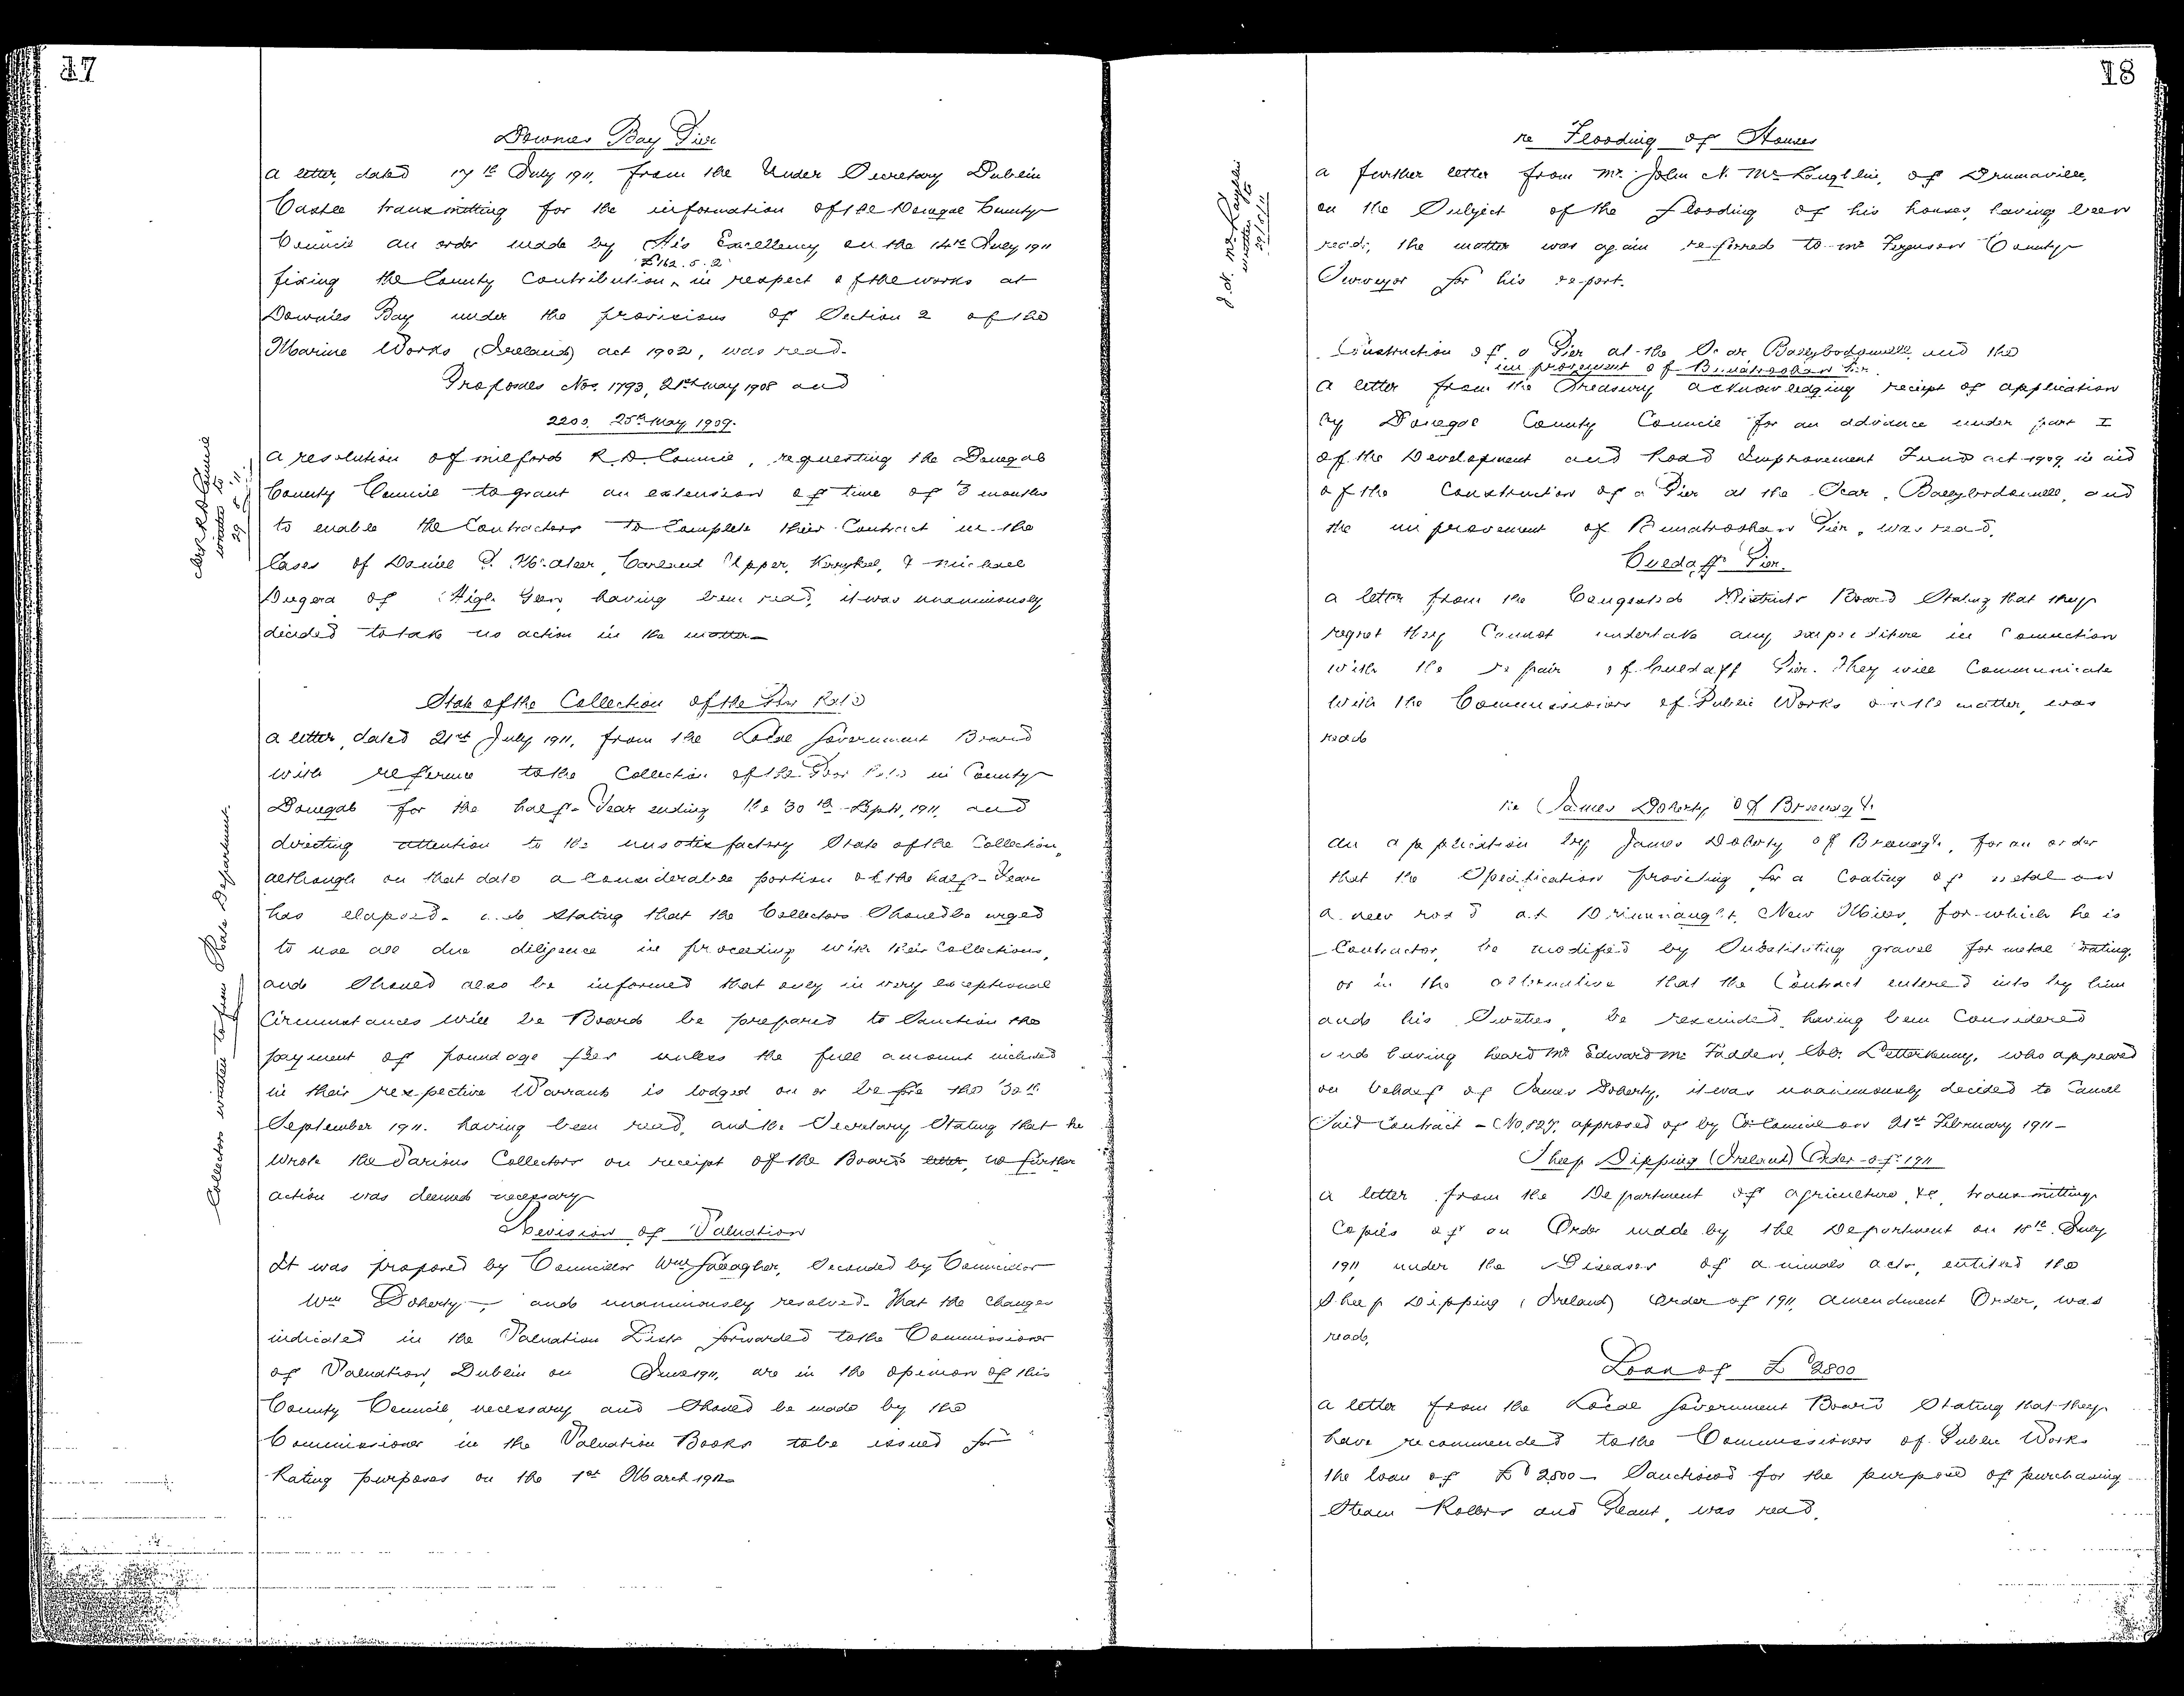 17
Downies Bay Pier
A letter, dated 17th July 1911, from the Under Secretary Dublin
Castle transmitting for the information of the Donegal County
Council an order made by His Excellency on the 14th July 1911
£162. 5. 2
fixing the County Contribution, in respect of the works at
Downies Bay under the provisions of Section 2 of the
Marine Works (Ireland) Act 1902, was read.
Proposals Nos. 1793, 21st May 1908 and
2200, 25th May 1909.
A resolution of Milford R. D. Council, requesting the Donegal
County Council to grant an extension of time of 3 months
to enable the Contractors to Complete their Contract in the
Cases of Daniel Upper, Kerrykeel, & Michael
of High Glen, having been read, it was unanimously
decided to take no action in the matter
Clerk R. D. Council
written to
29. 5. 11.
State of the Collection of the Poor Rate
A letter, dated 21st July 1911, from the Local Government Board
with reference to the Collection of the Poor Rate in County
Donegal for the half-Year ending the 30th Sept, 1911, and
directing attention to the unsatisfactory State of the Collection,
although on that date a considerable portion of the half-Year
has elapsed. and stating that the Collectors should be urged
to use all due diligence in proceeding with their Collections,
and should also be informed that only in very exceptional
Circumstances will the Board be prepared to Sanction the
payment of poundage fees unless the full amount included
in their respective Warrants is lodged on or before the 30th
September 1911. having been read, and the Secretary Stating that he
wrote the Various Collectors on receipt of the Board's letter, no further
action was deemed necessary
Collectors written to from Rate Department.
Revision of Valuation
It was proposed by Councillor Wm Gallagher, Seconded by Councillor
Wm Doherty, and unanimously resolved. That the changes
indicated in the Valuation Lists forwarded to the Commissioner
of Valuation, Dublin on June 1911, are in the opinion of this
County Council necessary and should be made by the
Commissioner in the Valuation Books to be issued for
Rating purposes on the 1st March 1912
18
re Flooding of Houses
A further letter from Mr. John N. McLoughlin, of Drumaville,
on the Subject of the flooding of his houses, having been
read, the matter was again referred to Mr Ferguson County
Surveyor for his report.
J. N. McLaughlin
written to
Construction of a Pier at the Scar, Ballybodonnell and the
improvement of Bunatroohan Pier
A letter from the Treasury acknowledging receipt of application
by Donegal County Council for an advance under part I
of the Development and Road Improvement Fund Act 1909 in aid
of the Construction of a Pier at the Scar, Ballybodonnell, and
the improvement of Bunatroohan Pier, was read.
Culdaff Pier.
A letter from the Congested Districts Board Stating that they
regret they Cannot undertake any expenditure in Connection
with the repair of Culdaff Pier. They will Communicate
with the Commissioners of Public Works on the matter, was
read
re James Doherty of Braenagh.
An application by James Doherty of Braenagh, for an order
that the Specification providing for a Coating of metal on
a new road at Drimnaught, New Mills, for which he is
Contractor, be modified by Substituting gravel for metal coating,
or in the alternative that the Contract entered into by him
and his Sureties, be rescinded, having been Considered
and having heard Mr Edward McFadden, Solr. Letterkenny, who appeared
on behalf of James Doherty, it was unanimously decided to Cancel
Said Contract - No. 827, approved of by Co: Council on 21st February 1911 -
Sheep Dipping (Ireland) Order of 1911
A letter from the Department of Agriculture, &c, transmitting
Copies of an Order made by the Department on 18th July
1911, under the Diseases of Animals Acts, entitled the
Sheep Dipping (Ireland) Order of 1911, Amendment Order, was
read.
Loan of £2800
A letter from the Local Government Board Stating that they
have recommended to the Commissioners of Public Works
the loan of £2800 - Sanctioned for the purpose of purchasing
Steam Rollers and Plant, was read.